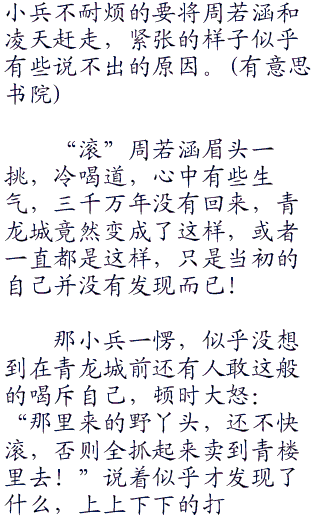 小兵不耐烦的要将周若涵和
凌天赶走，紧张的样子似乎
有些说不出的原因。(有意思
书院)
“滚”周若涵眉头一
挑，冷喝道，心中有些生
气，三千万年没有回来，青
龙城竟然变成了这样，或者
一直都是这样，只是当初的
自己并没有发现而已！
那小兵一愣，似乎没想
到在青龙城前还有人敢这般
的喝斥自己，顿时大怒：
“那里来的野丫头，还不快
滚，否则全抓起来卖到青楼
里去！”说着似乎才发现了
什么，上上下下的打